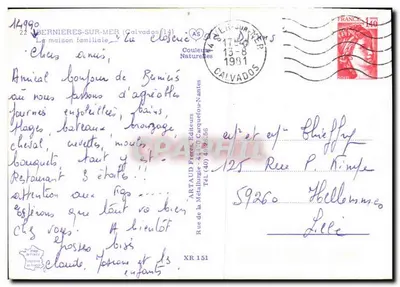 14990
BERNIERES-SUR-MER (Calvados)
La maison familiale
Couleurs
Naturelles
17H
13-8
1981
CALVADOS
FRANCE
1,40
Chers amis,
Amical bonjour de Bernières
où nous passons d'agréables
journées ensoleillées, bains,
plages, bateaux, bronzage,
cheval, crevettes, moules
bouquets tout y
Restaurant 3 étoiles !!!
attention aux kgs ....
espérons que tout va bien
chez vous. A bientôt
grosses bises
Claude, et les
enfants
ARTAUD Frères, Editeurs
Rue de la Métallurgie, 44470 Carquefou-Nantes
XR 151
Mr et Mme
125 Rue P.
59260 Hellemmes
Lille